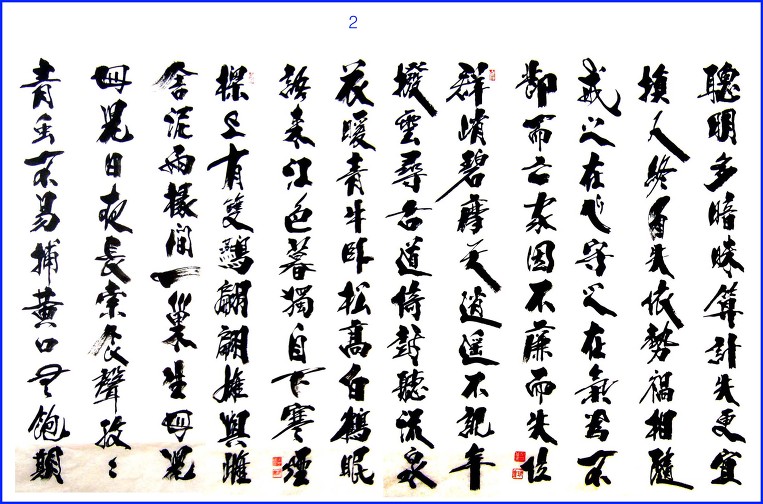 2
聰明多暗昧算計失便宜
損人終自失依勢禍相隨
戒之在心守之在氣為不
節而亡家因不廉而失位
群峭碧摩天逍遙不記年
撥雲尋古道倚樹聽流泉
花暖青牛臥松高白鶴眠
語來江色暮獨自下寒煙
樑上有雙燕翩翩雄與雌
含泥兩椽間一巢生四兒
四兒日夜長索食聲孜々
青虫不易捕黃口無飽期